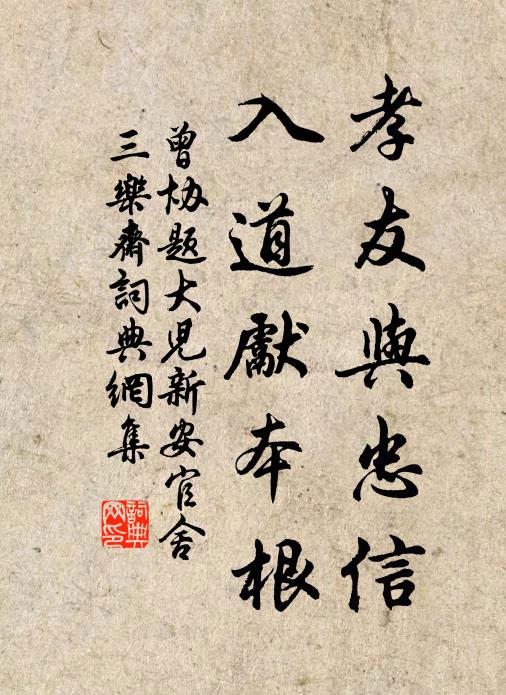 孝友與忠信
入道獻本根
曾協題大児新安官舍
三樂齋詞典網集
詞典
网印